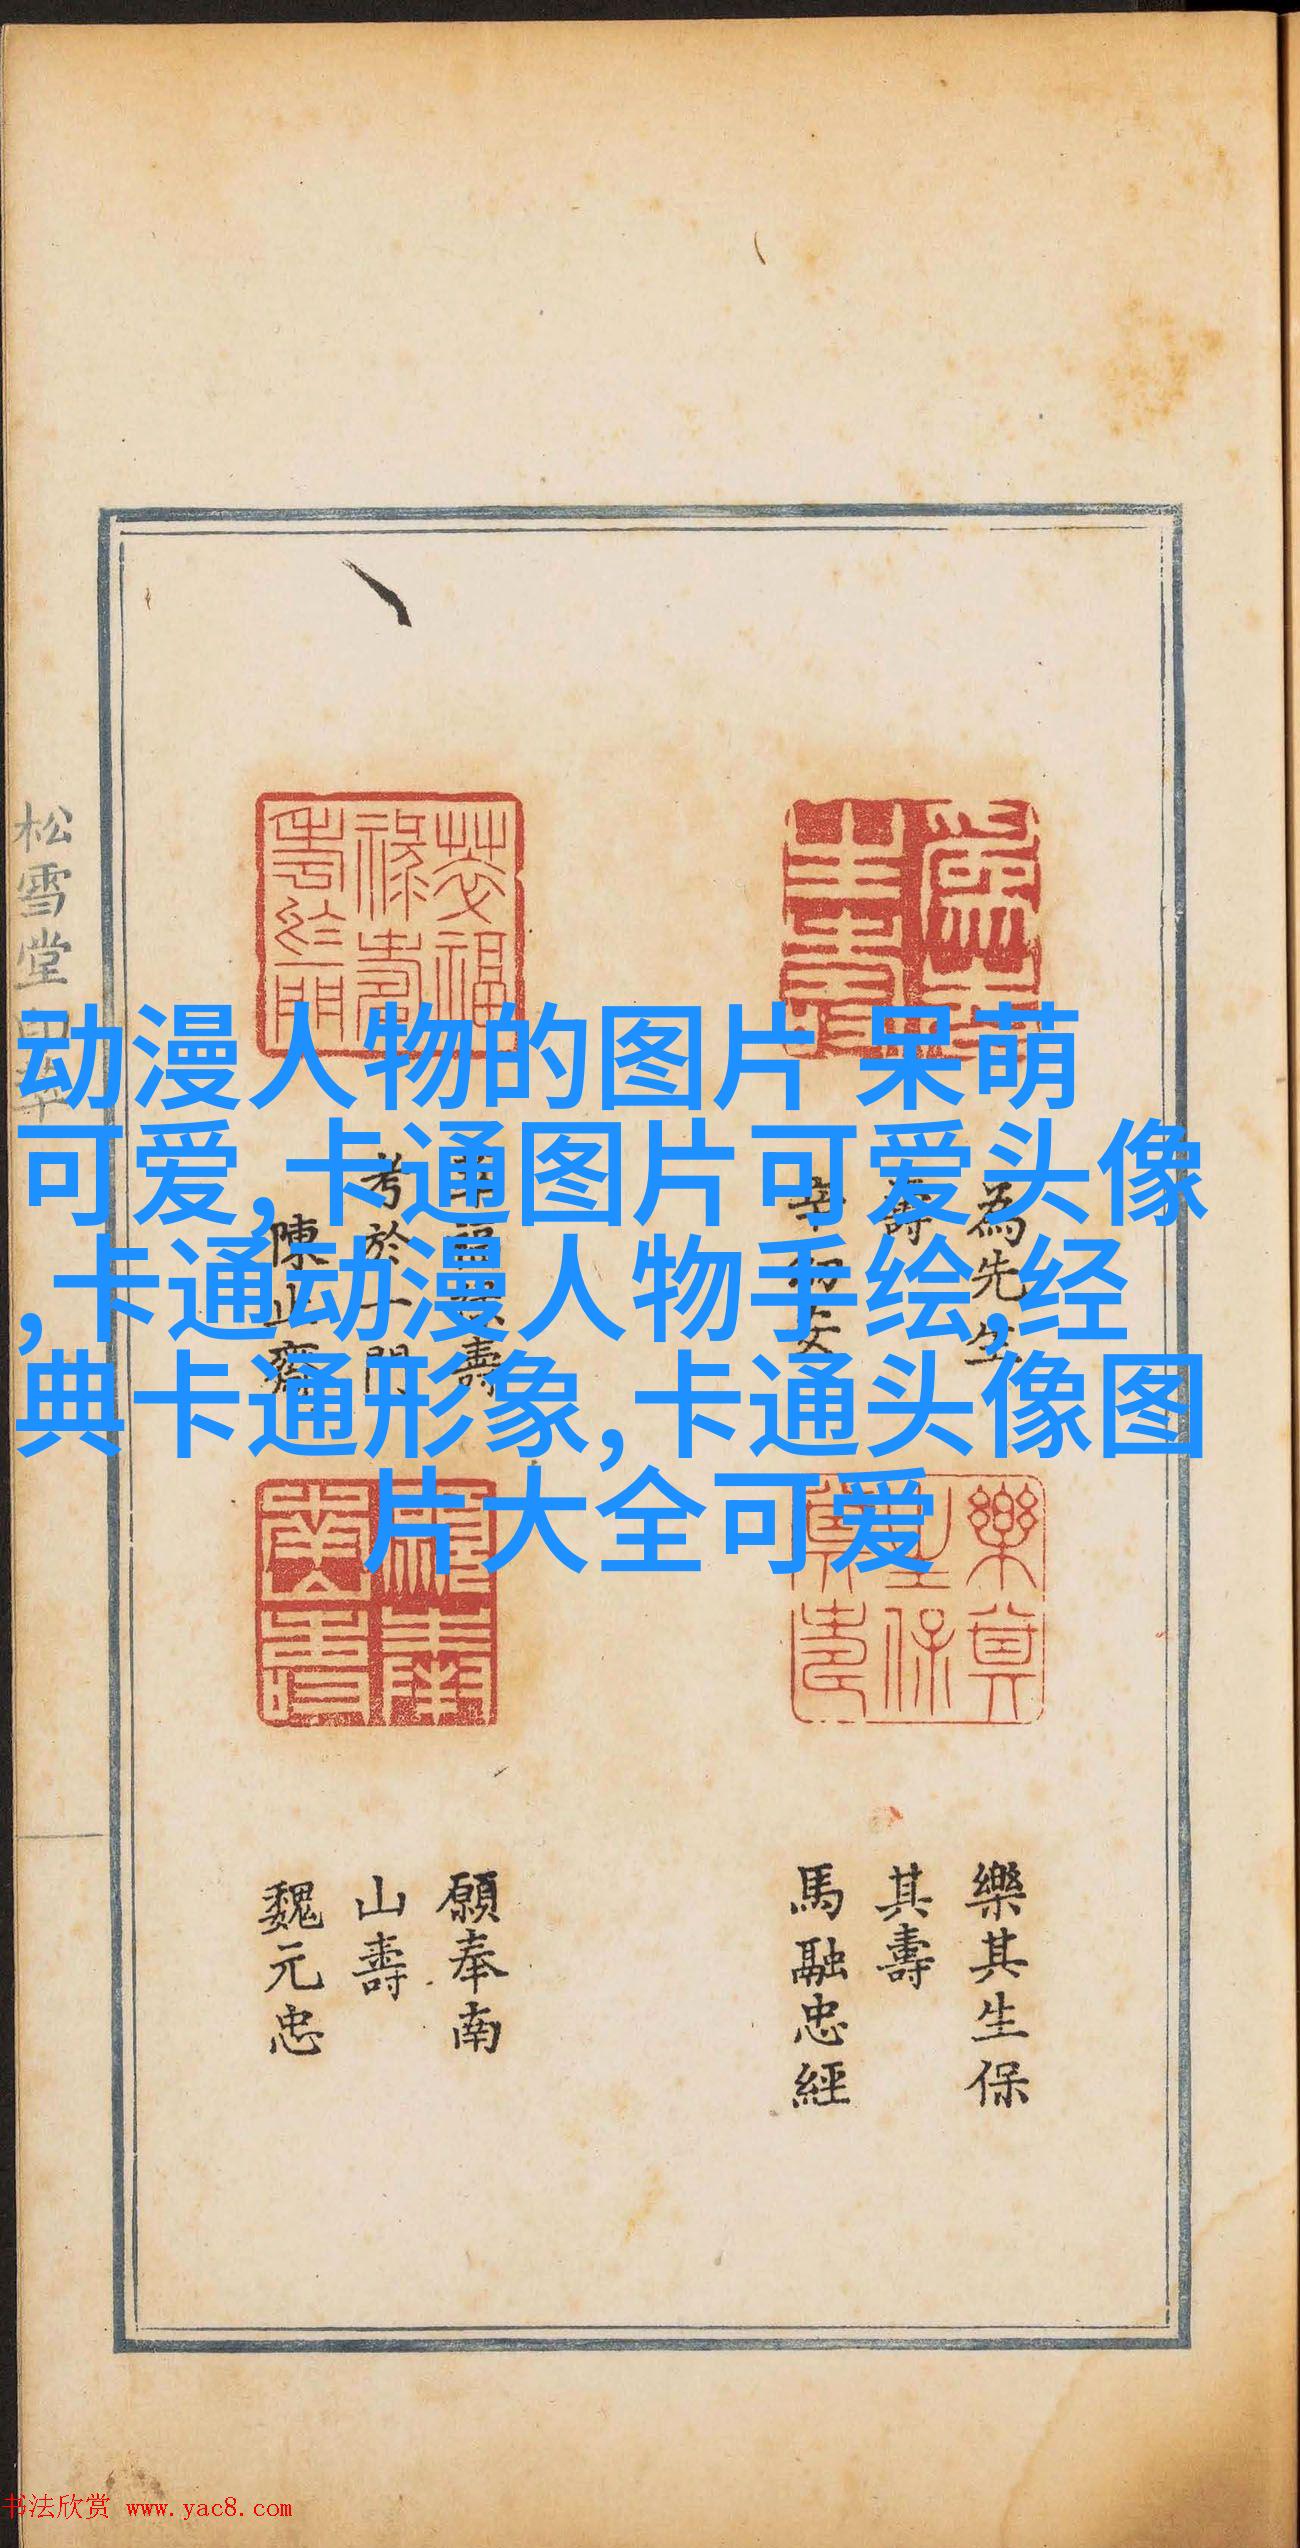 动漫人物的图片 呆萌
可爱,卡通图片可爱头像
,卡通动漫人物手绘,经
典卡通形象,卡通头像图
片大全可爱
松雪堂
為先生
壽
考於一門
陳止齋
樂其生保
其壽
馬融忠經
願奉南
山壽
魏元忠
书法欣赏 www.yac8.com